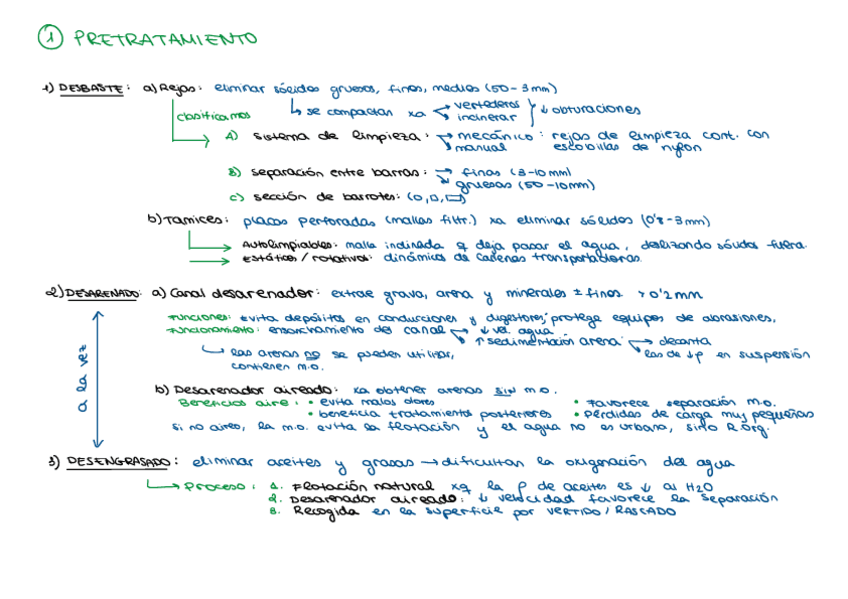 1 PRETRATAMIENTO
1) DESBASTE: a) Rejas: eliminar sólidos gruesos, finos, medios (50-3mm)
clasificamos ↳ se compactan xa vertederos incinerar ↓ obturaciones
A) sistema de limpieza: → mecánico: rejas de limpieza cont. con
manual escobillas de nylon
B) separación entre barras: → finas (3-10mm)
gruesas (50-10mm)
C) sección de barrotes: (O,D,▭)
b) Tamices: placas perforadas (mallas filtr.) xa eliminar sólidos (0'2-3mm)
Autolimpiables: malla inclinada q deja pasar el agua, deslizando sólidos fuera.
Estáticos / rotativos: dinámica de cadenas transportadoras.
2) DESARENADO: a) Canal desarenador: extrae grava, arena y minerales ± finos >0'2mm
Funciones: evita depósitos en conducciones y digestores, protege equipos de abrasiones.
Funcionamiento: ensanchamiento del canal → ↓ vel. agua
↑ sedimentación arena → decanta
↳ las arenas no se pueden utilizar, las de ↓ρ en suspensión
contienen m.o.
a la vez
b) Desarenador aireado: xa obtener arenas sin m.o.
Beneficios aire: • evita malos olores • Favorece separación m.o.
• beneficia tratamientos posteriores • pérdidas de carga muy pequeñas
si no aireo, la m.o. evita la flotación y el agua no es urbana, sino R. org.
3) DESENGRASADO: eliminar aceites y grasas → dificultan la oxigenación del agua
↳ Proceso: 1. Flotación natural xq la ρ de aceites es ↓ al H2O
2. Desarenador aireado: ↓ velocidad favorece la separación
3. Recogida en la superficie por VERTIDO / RASCADO